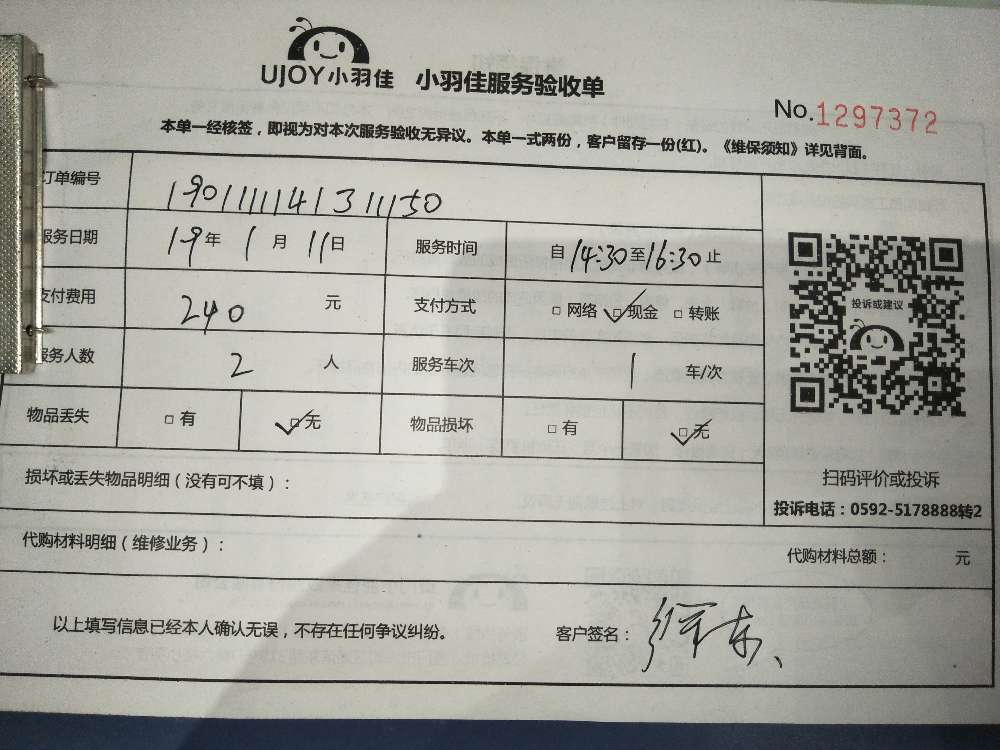 UJOY小羽佳 小羽佳服务验收单
No.1297372
本单一经核签，即视为对本次服务验收无异议。本单一式两份，客户留存一份(红)。《维保须知》详见背面。
订单编号 190111141311150
服务日期 19年 1月 11日 服务时间 自14:30至16:30止
支付费用 240 元 支付方式 □网络 □现金 □转账
投诉或建议
服务人数 2 人 服务车次 1 车/次
物品丢失 □有 □无 物品损坏 □有 □无
损坏或丢失物品明细（没有可不填）：
扫码评价或投诉
投诉电话：0592-5178888转2
代购材料明细（维修业务）： 代购材料总额： 元
以上填写信息已经本人确认无误，不存在任何争议纠纷。 客户签名：